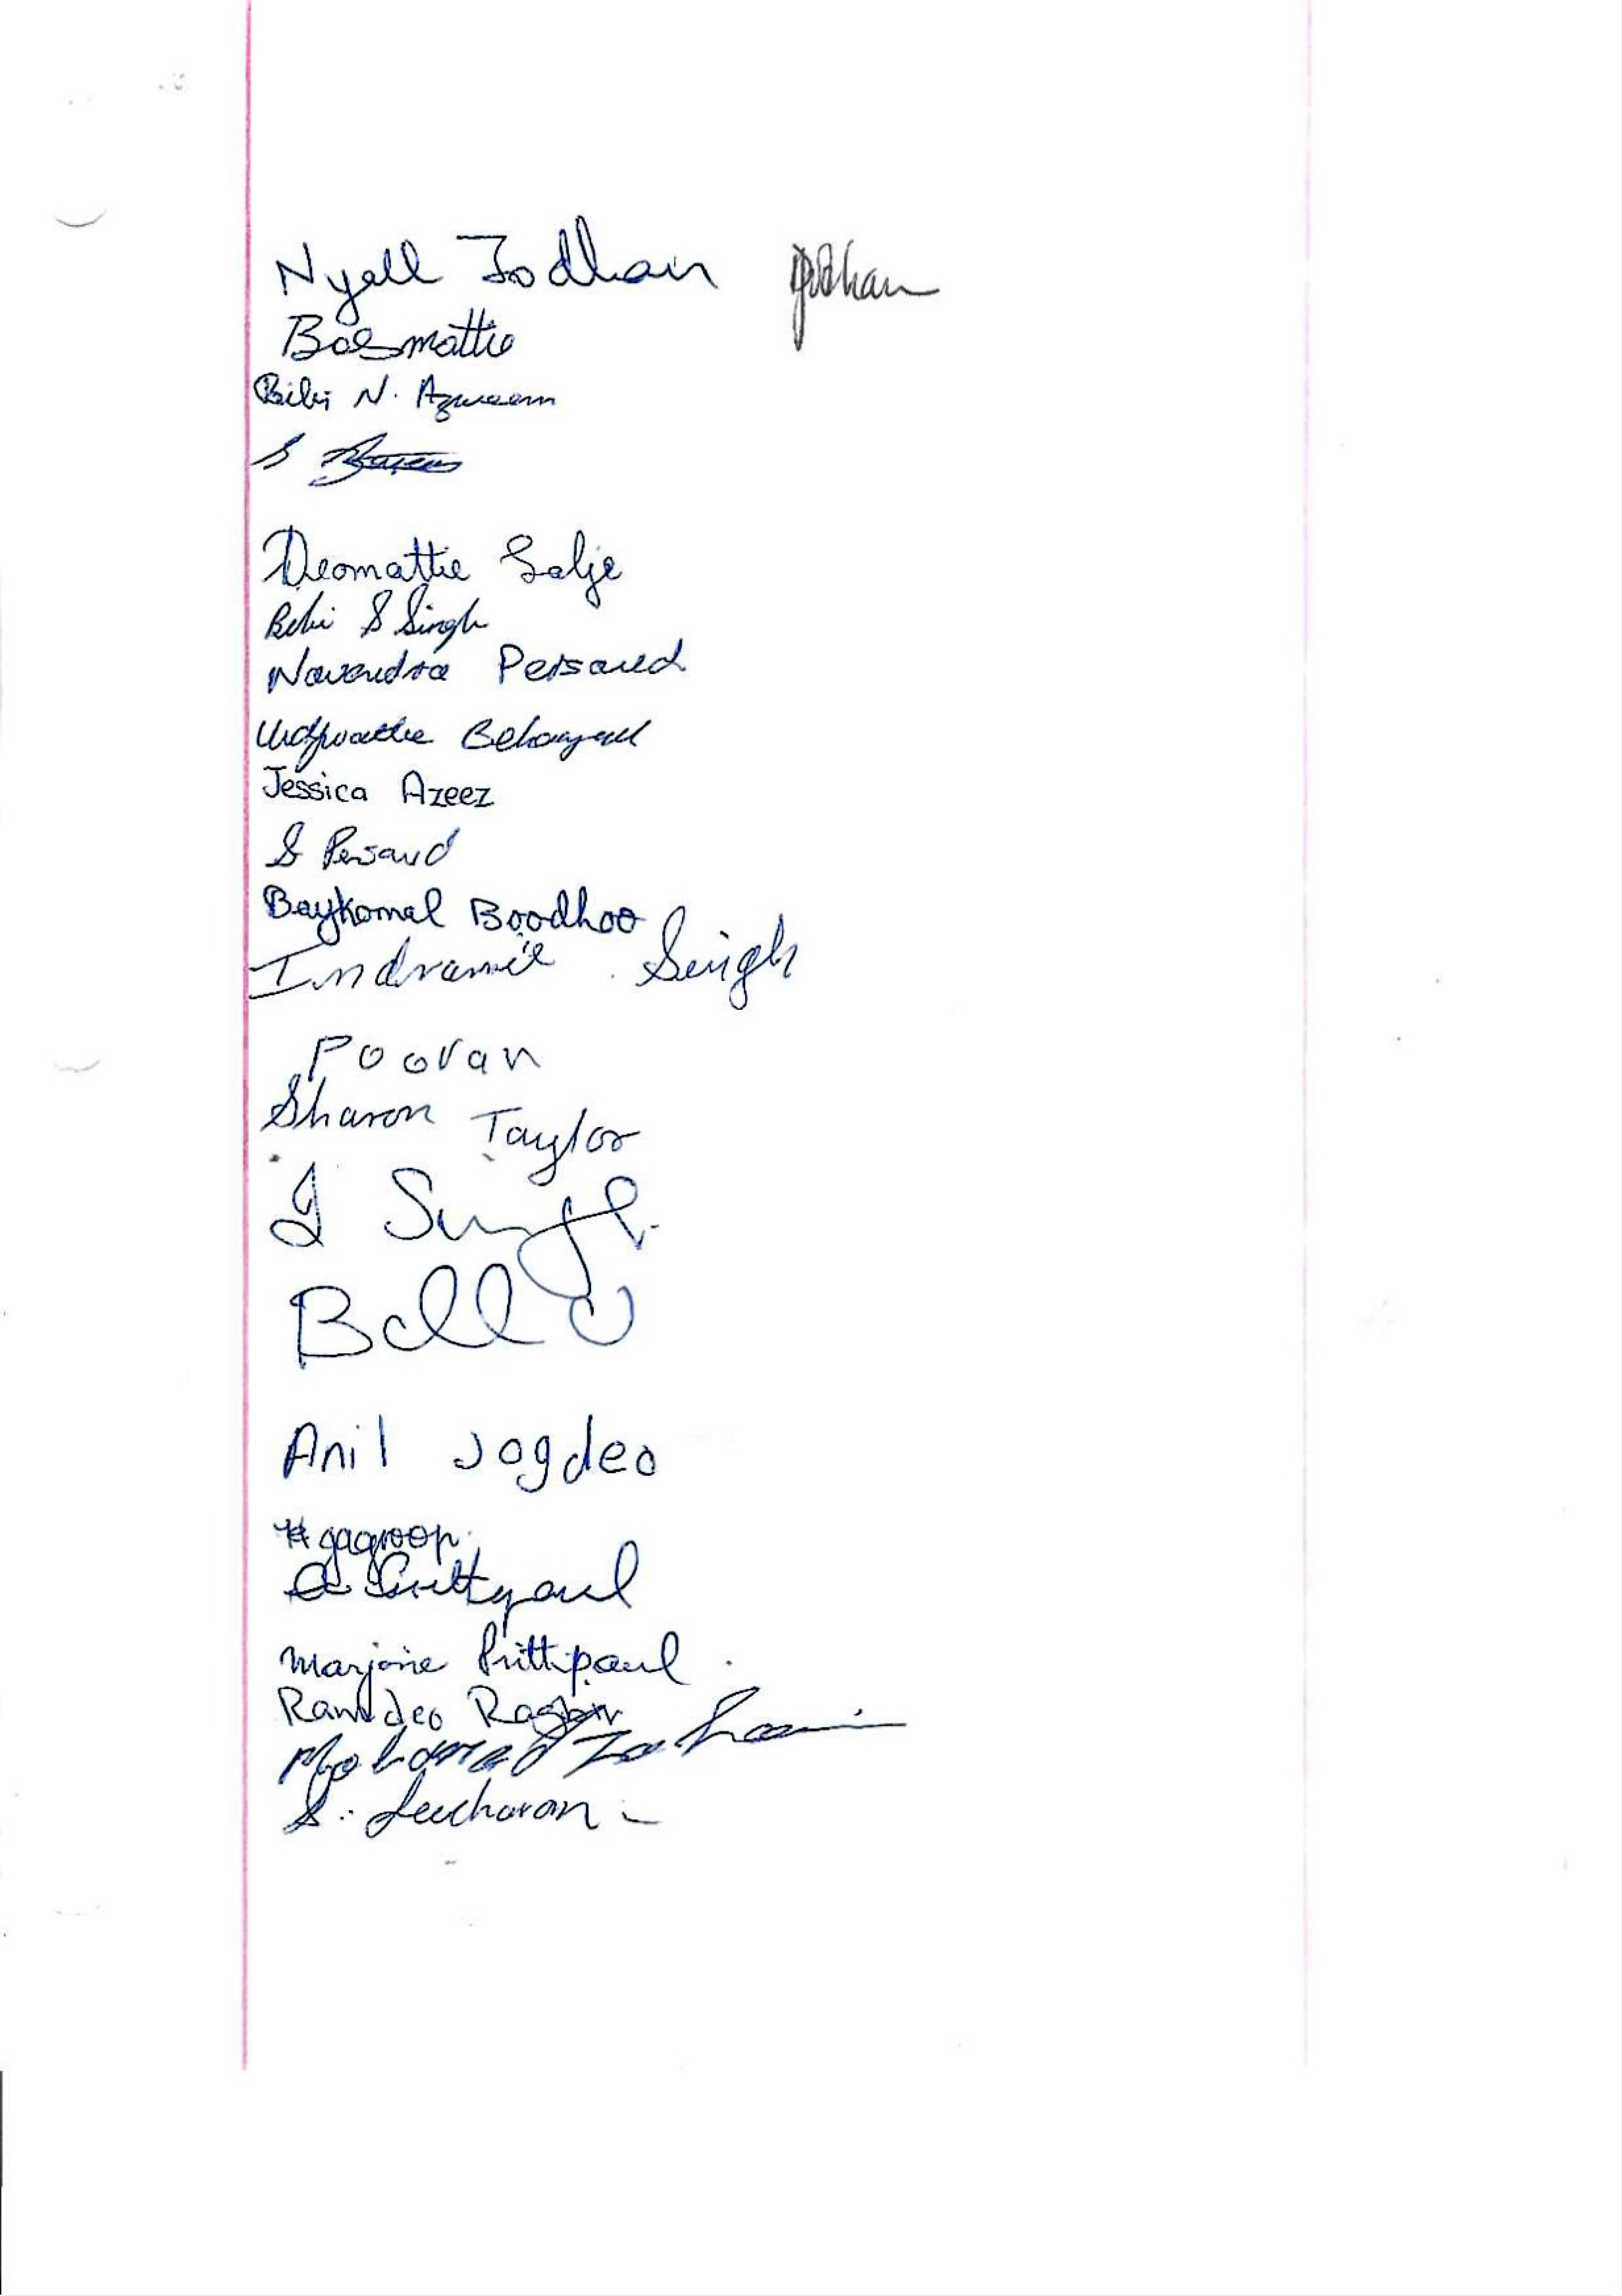 Nyall Jodhan Jodhan
Basmattie
Bibi N. Azweem
S
Deomattie Salje
Bebi S Singh
Navendra Persaud
Jessica Azeez
S Persaud
Baykomal Boodhoo
Indramie Singh
Pooran
Sharon Taylor
J Singh
Boll
Anil Jogdeo
Jagroop
Prittypaul
Marjorie Prittipaul
Ramdeo
Mohamed
S. Leucharan